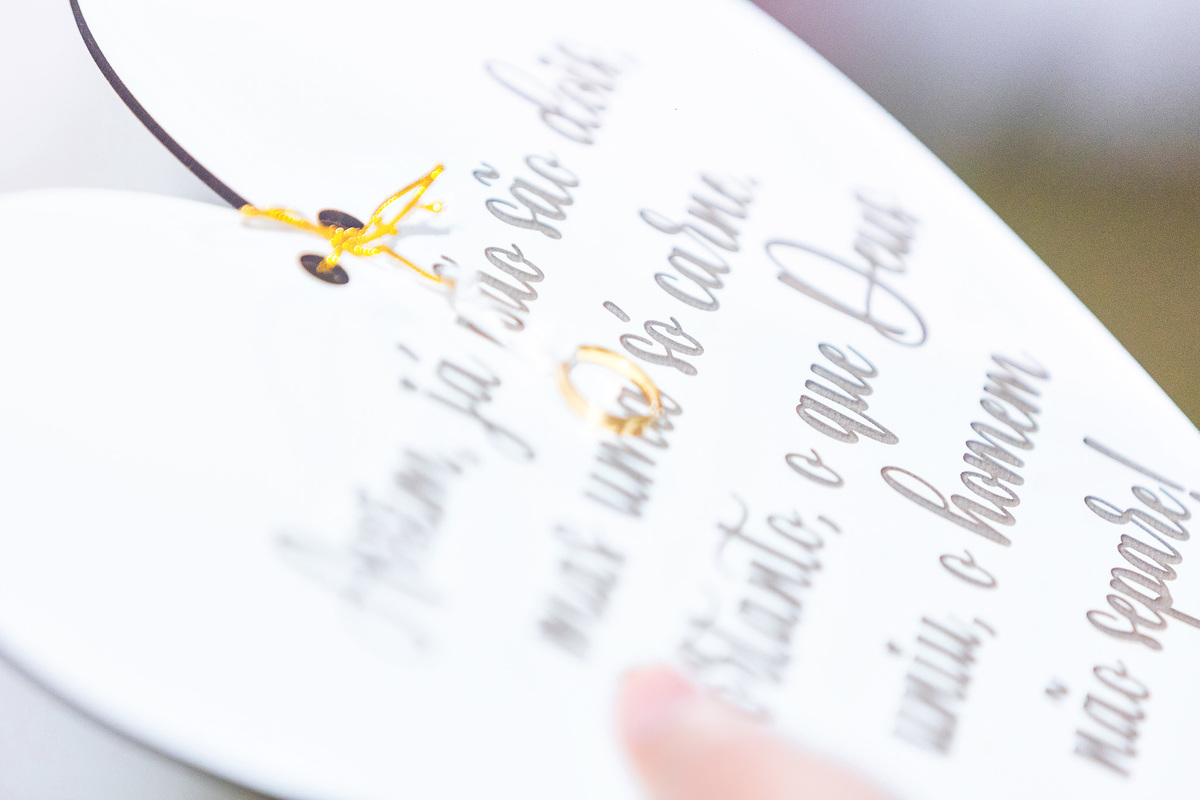 Assim, já não são dois,
mas uma só carne.
Portanto, o que Deus
uniu, o homem
não separe!